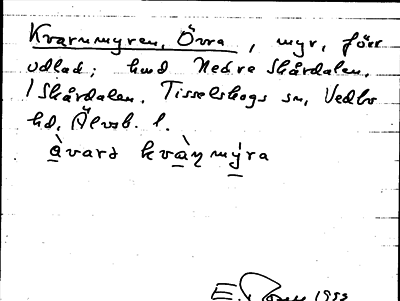 Kvarnmyren, Övra, myr, förr
odlad; hmd Nedre Skårdalen.
/ Skårdalen. Tisselskogs sn, Vedbo
hd, Älvsb. l.
àvarə kvàṇmýra
E. 1933